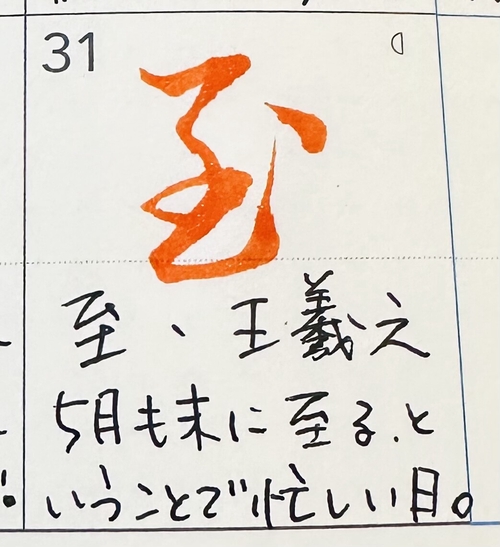 31
至
至、王羲之
5月も末に至る、と
いうことで忙しい日。